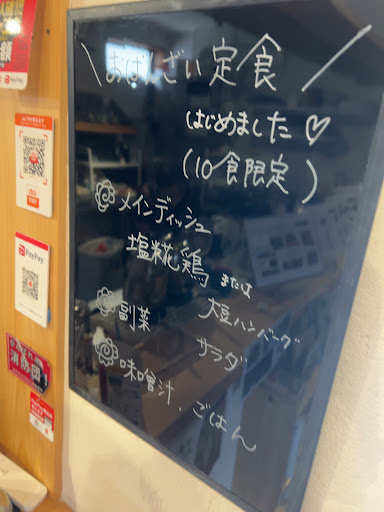 おばんざい定食
はじめました♡
(10食限定)
メインディッシュ
塩糀鶏 または
大豆ハンバーグ
副菜 サラダ
味噌汁、ごはん
PayPay
消防団